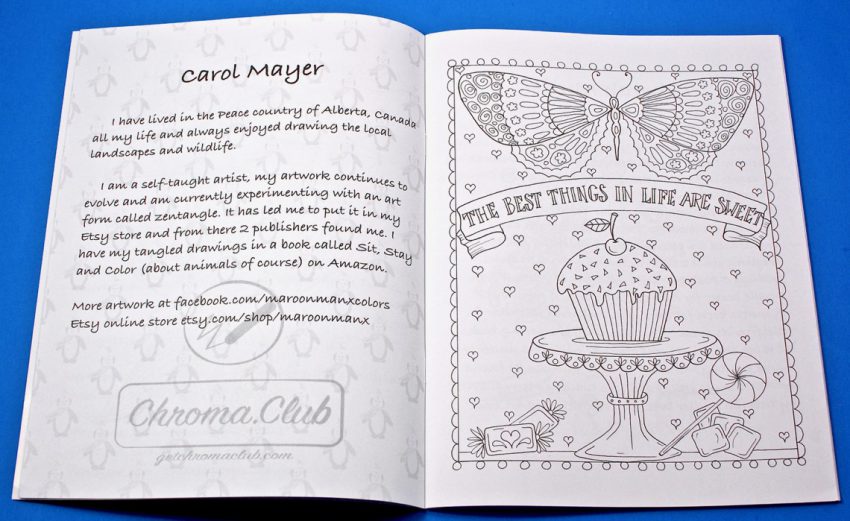 Carol Mayer
I have lived in the Peace country of Alberta, Canada
all my life and always enjoyed drawing the local
landscapes and wildlife.
I am a self-taught artist, my artwork continues to
evolve and am currently experimenting with an art
form called zentangle. It has led me to put it in my
Etsy store and from there 2 publishers found me. I
have my tangled drawings in a book called Sit, Stay
and Color (about animals of course) on Amazon.
More artwork at facebook.com/maroonmanxcolors
Etsy online store etsy.com/shop/maroonmanx
Chroma.Club
getchromaclub.com
THE BEST THINGS IN LIFE ARE SWEET